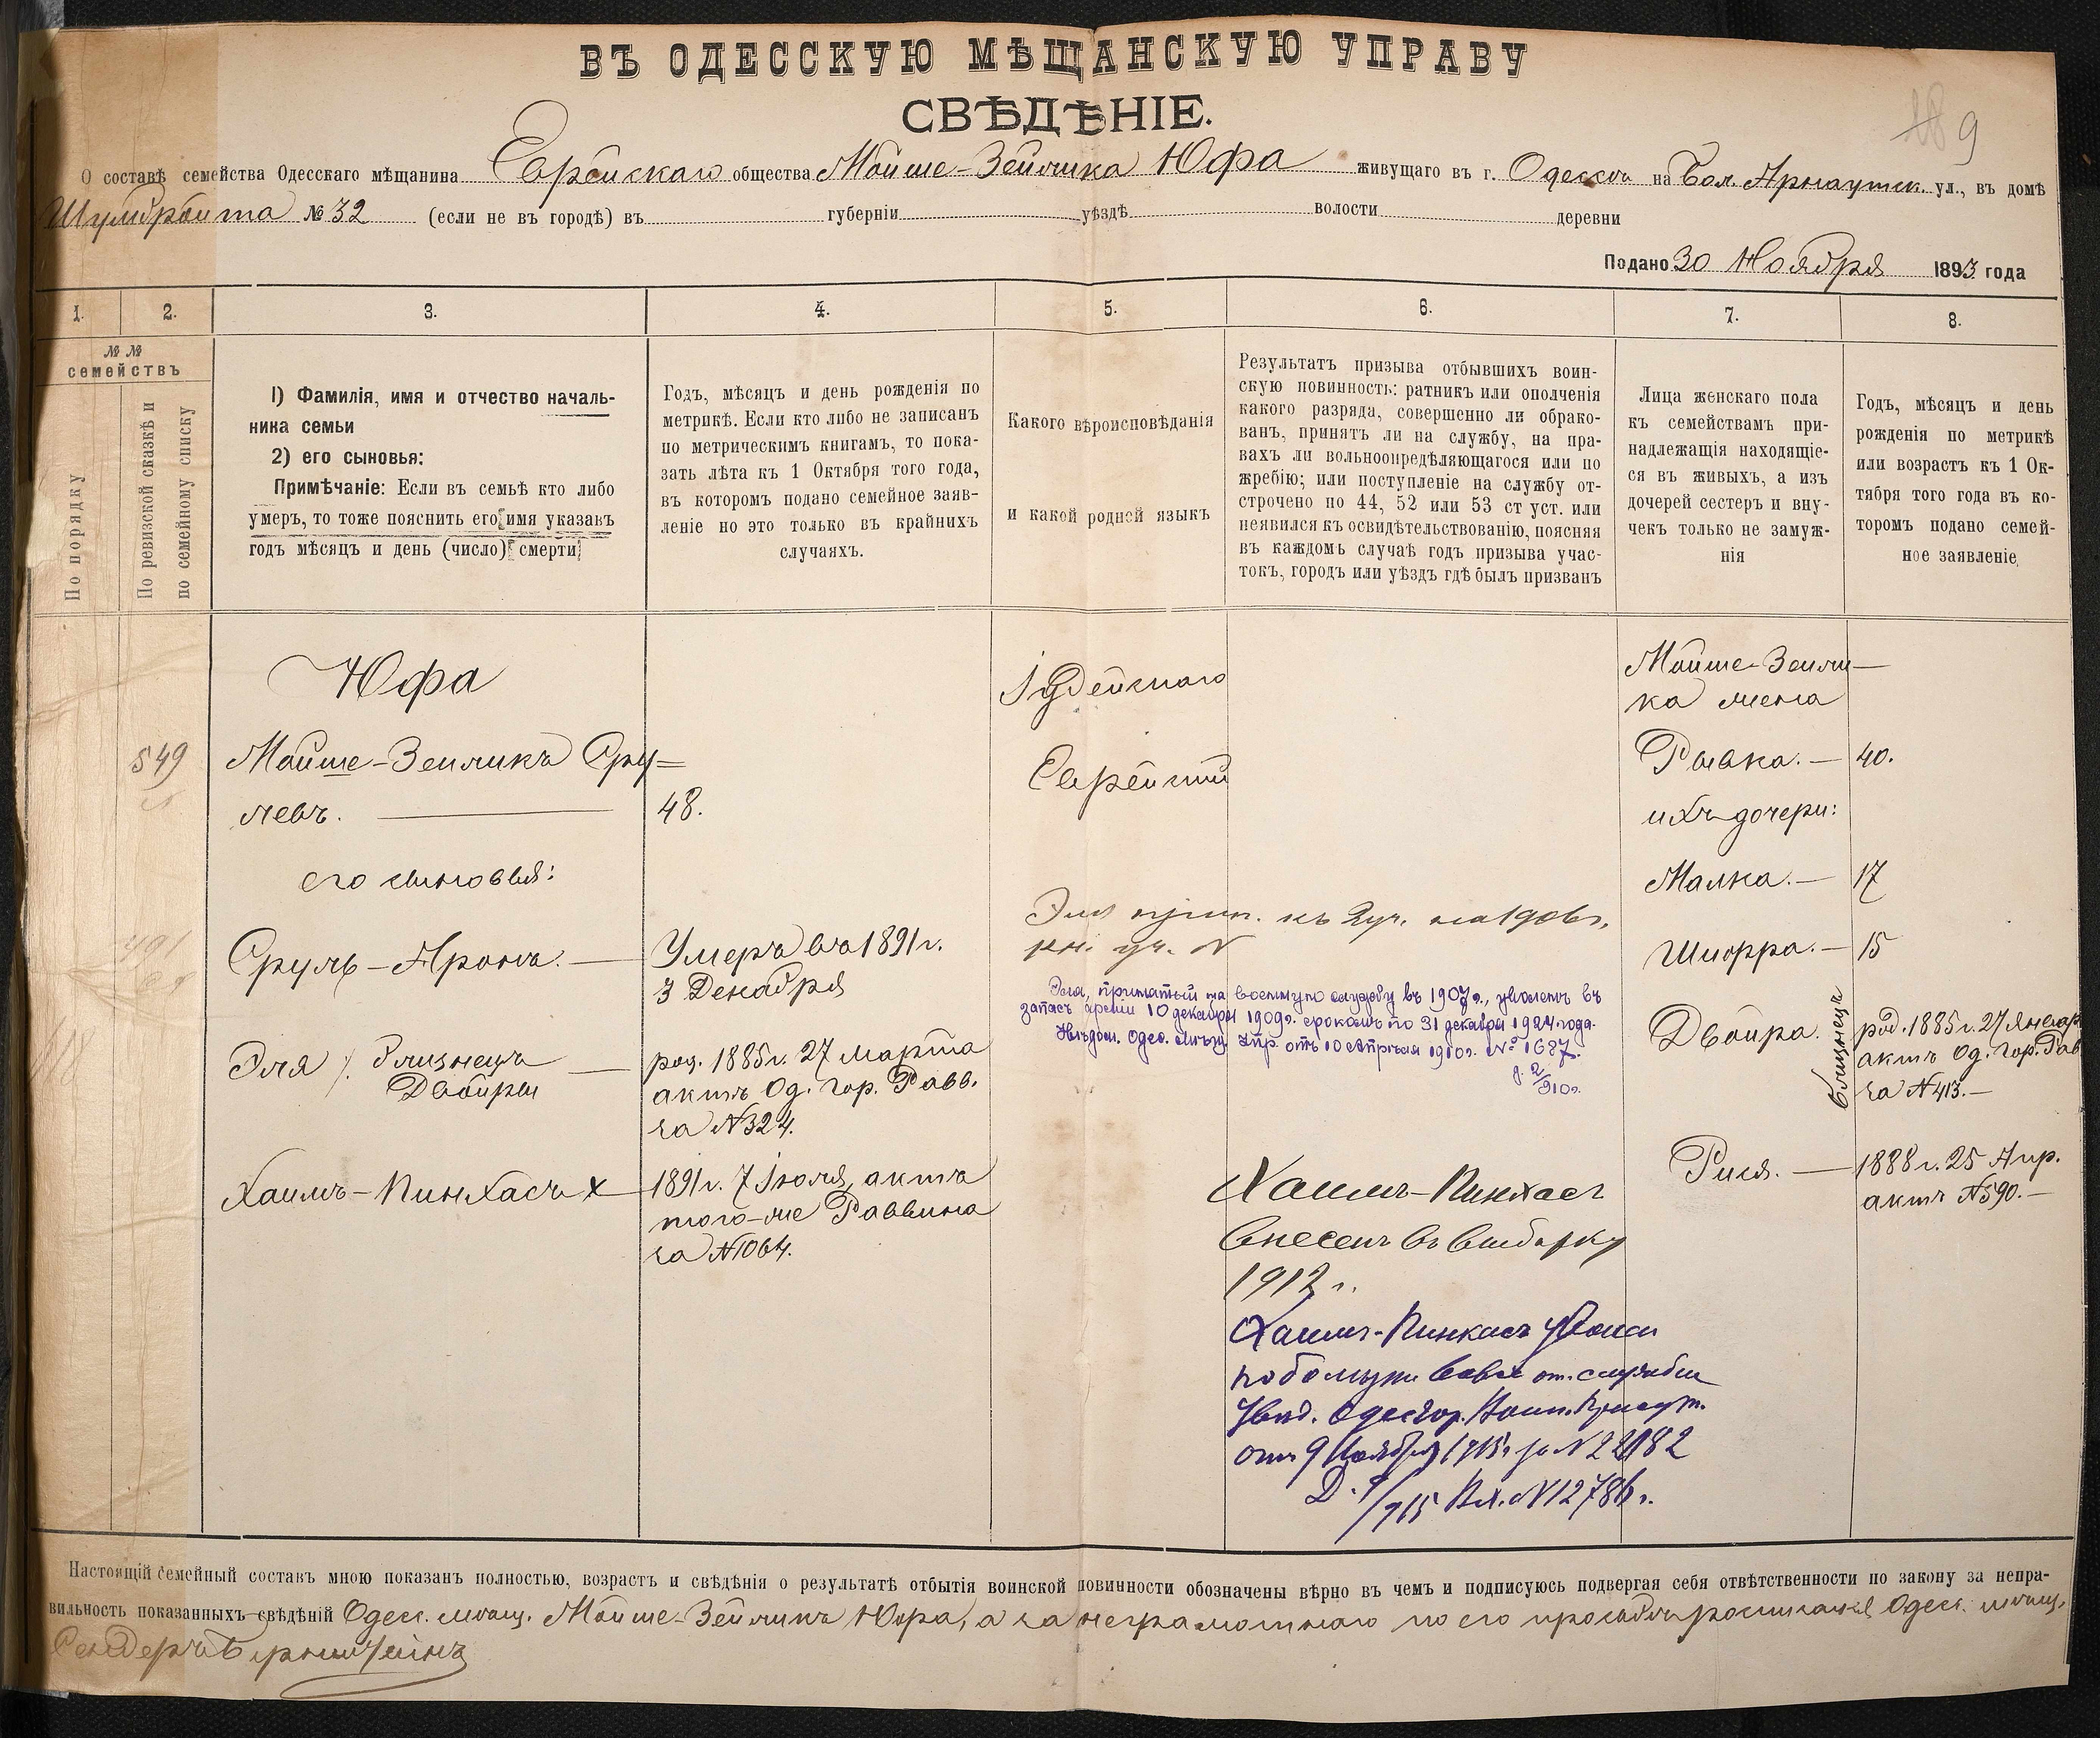 ВЪ ОДЕССКУЮ МѢЩАНСКУЮ УПРАВУ
СВѢДѢНІЕ.
9
О составѣ семейства Одесскаго мѣщанина Еврейскаго общества Мойше-Зейлика Юфа живущаго въ г. Одессѣ на Бол. Арнаутск. ул., въ домѣ
№ 32 (если не въ городѣ) въ губерніи уѣздѣ волости деревни
Подано 30 Ноября 1893 года
1.
2.
3.
4.
5.
6.
7.
8.
№ №
семействъ
По порядку
По ревизской сказкѣ и
по семейному списку
1) Фамилія, имя и отчество началь-
ника семьи
2) его сыновья:
Примѣчаніе: Если въ семьѣ кто либо
умеръ, то тоже пояснить его имя указавъ
годъ мѣсяцъ и день (число) смерти
Годъ, мѣсяцъ и день рожденія по
метрикѣ. Если кто либо не записанъ
по метрическимъ книгамъ, то пока-
зать лѣта къ 1 Октября того года,
въ которомъ подано семейное заяв-
леніе но это только въ крайнихъ
случаяхъ.
Какого вѣроисповѣданія
и какой родной языкъ
Результатъ призыва отбывшихъ воин-
скую повинность: ратникъ или ополченія
какого разряда, совершенно ли обрако-
ванъ, принятъ ли на службу, на пра-
вахъ ли вольноопредѣляющагося или по
жребію; или поступленіе на службу от-
строчено по 44, 52 или 53 ст уст. или
неявился къ освидѣтельствованію, поясняя
въ каждомъ случаѣ годъ призыва учас-
токъ, городъ или уѣздъ гдѣ былъ призванъ
Лица женскаго пола
къ семействамъ при-
надлежащія находящіе-
ся въ живыхъ, а изъ
дочерей сестеръ и вну-
чекъ только не замуж-
нія
Годъ, мѣсяцъ и день
рожденія по метрикѣ
или возрастъ къ 1 Ок-
тября того года въ ко-
торомъ подано семей-
ное заявленіе
Юфа
549
Мойше-Зеиликъ Сру=
левъ. — 48.
его сыновья:
491
Сруль-Аронъ. — Умеръ въ 1891 г.
3 Декабря
Эля близнецъ
Двойры
род. 1885 г. 27 Марта
актъ Од. Гор. Равв.
за N 324.
Хаимъ-Пинхасъ х
1891 г. 7 Іюля, актъ
того-же Раввина
за N 1064.
Іудейскаго
Еврейскій
Эля прип. къ 2 уч. на 1906 г.
Эля, принятый на военную службу въ 1907 г., уволенъ въ
запасъ арміи 10 декабря 1909 г. срокомъ по 31 декабря 1924 года.
Увѣдом. Одес. Упр. отъ 10 Апрѣля 1910 г. № 1687.
д. 2/910 г.
Хаимъ-Пинхасъ
внесенъ въ выборку
1912 г.
Хаимъ-Пинхасъ
отъ службы
Увѣд. Одес. гор. Воин. Присут.
отъ 9 Ноября 1915 г. за N 22182
Вх. N 12786 г.
Мойше-Зеили-
ка жена
Рывка. — 40.
ихъ дочери:
Малка. — 17
Шифра. — 15
Двойра.
близнецъ
род. 1885 г. 27 Января
актъ Од. Гор. Рав
за N 413. —
Рися. — 1888 г. 25 Апр.
актъ N 590. —
Настоящій семейный составъ мною показанъ полностью, возрастъ и свѣдѣнія о результатѣ отбытія воинской повинности обозначены вѣрно въ чемъ и подписуюсь подвергая себя отвѣтственности по закону за непра-
вильность показанныхъ свѣдѣній Одес. мѣщ. Мойше-Зейликъ Юфа, а за неграмотнаго по его просьбѣ росписался Одес. мѣщ.
Сендеръ Бернштейнъ